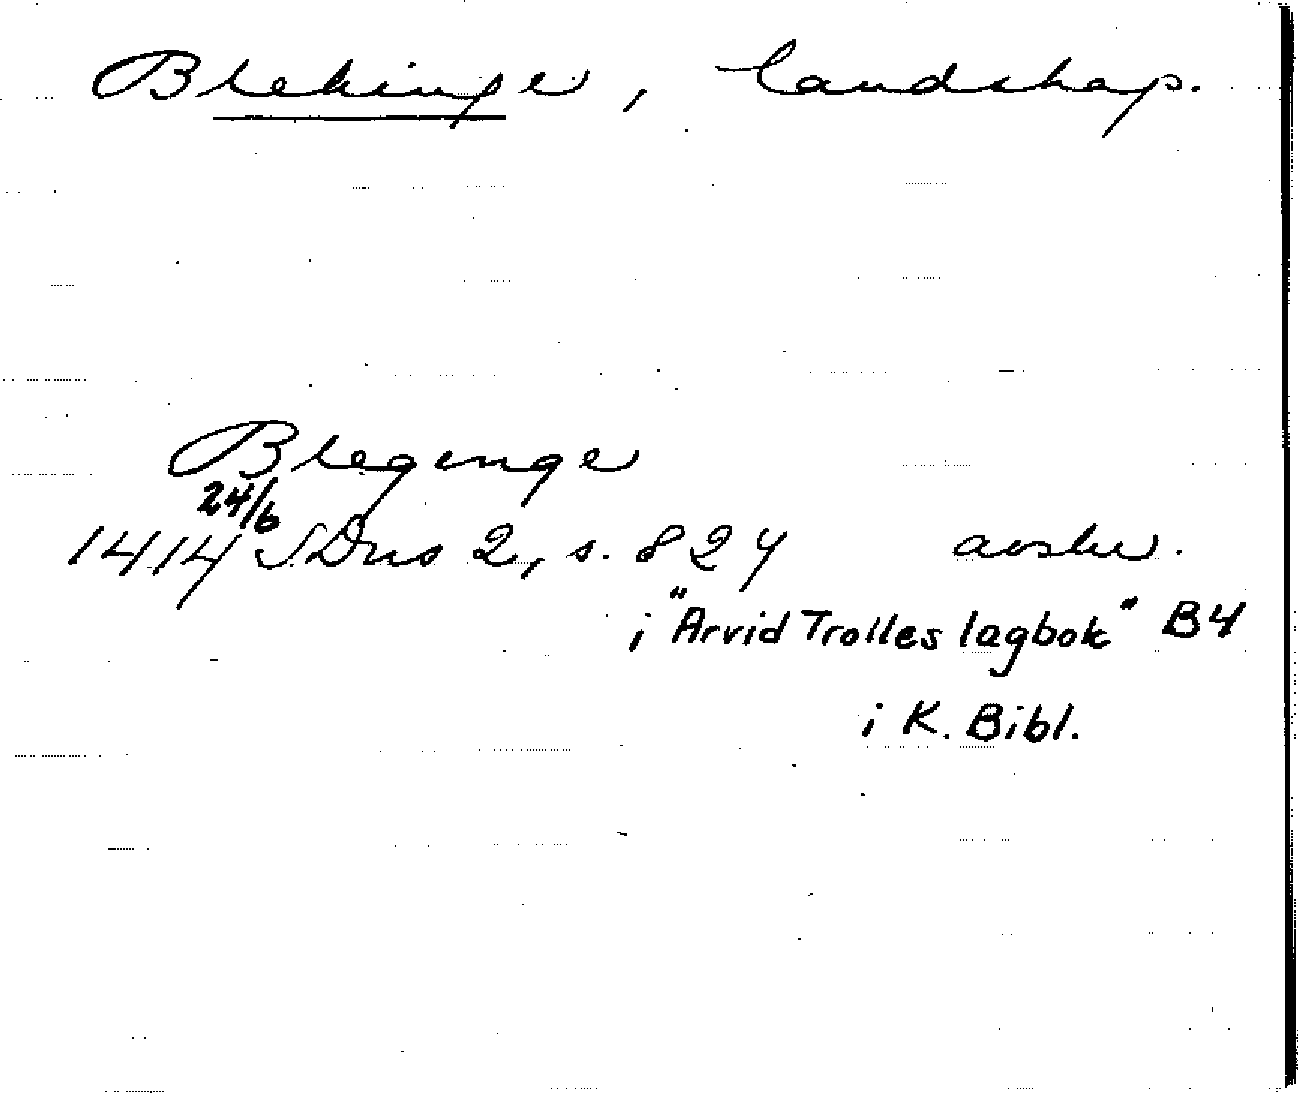 Blekinge, landskap.
Blegenge
24/6
1414 SDns 2, s. 827 avskr.
i "Arvid Trolles lagbok" B4
i K. Bibl.